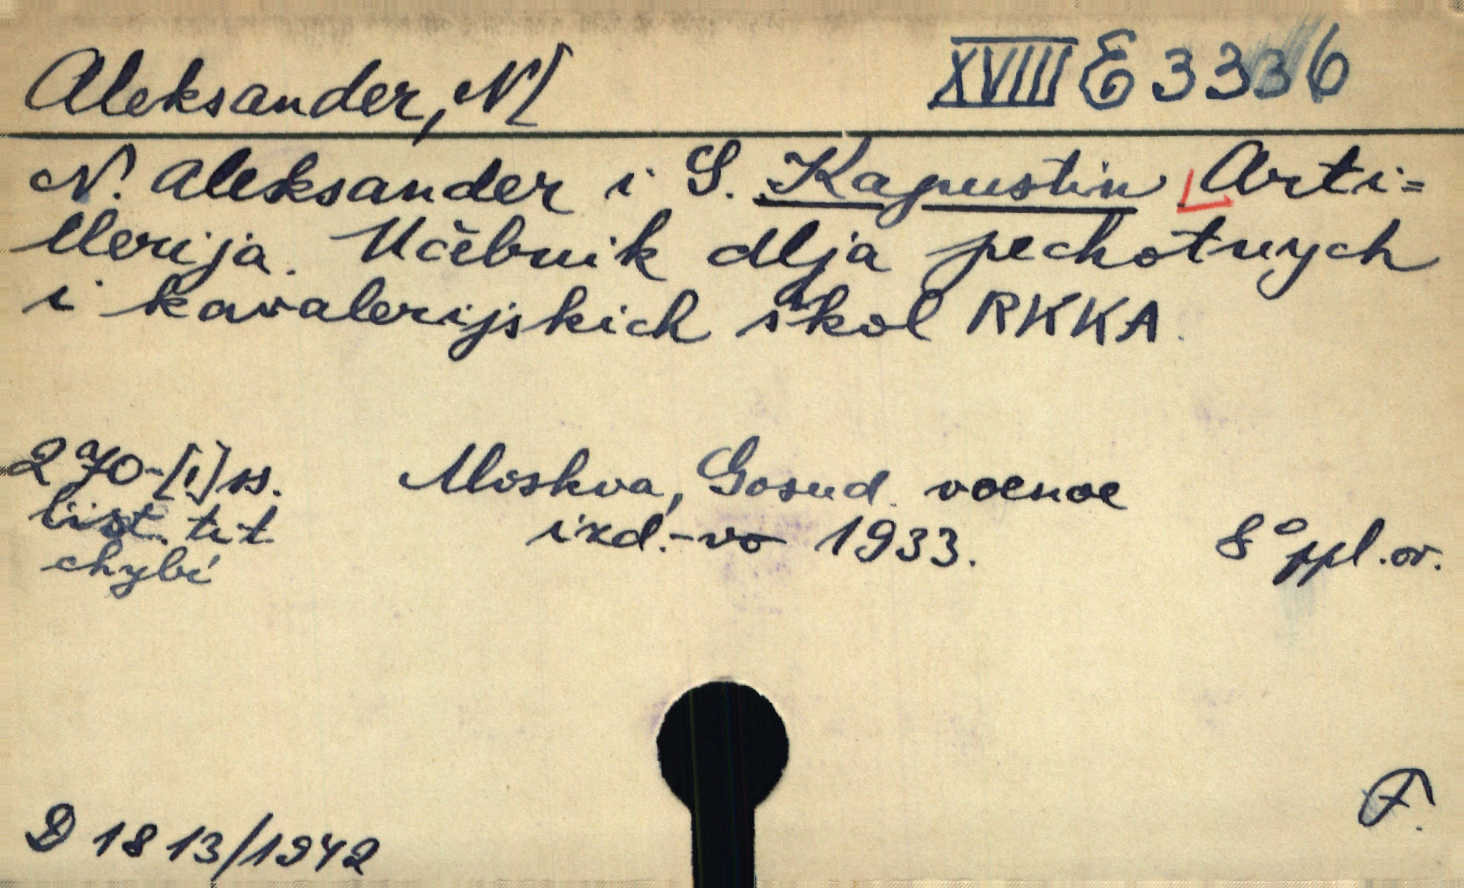 Aleksander, N[
XVIII E 3336
N. Aleksander i S. Kapustin Arti=
llerija. Učebnik dlja pechotnych
i kavalerijskich škol RKKA.
270-[1] ss.
list. tit
chybí
Moskva, Gosud. voennoe
izd.-vo 1933.
8° ppl. or.
F.
D 1813/1942